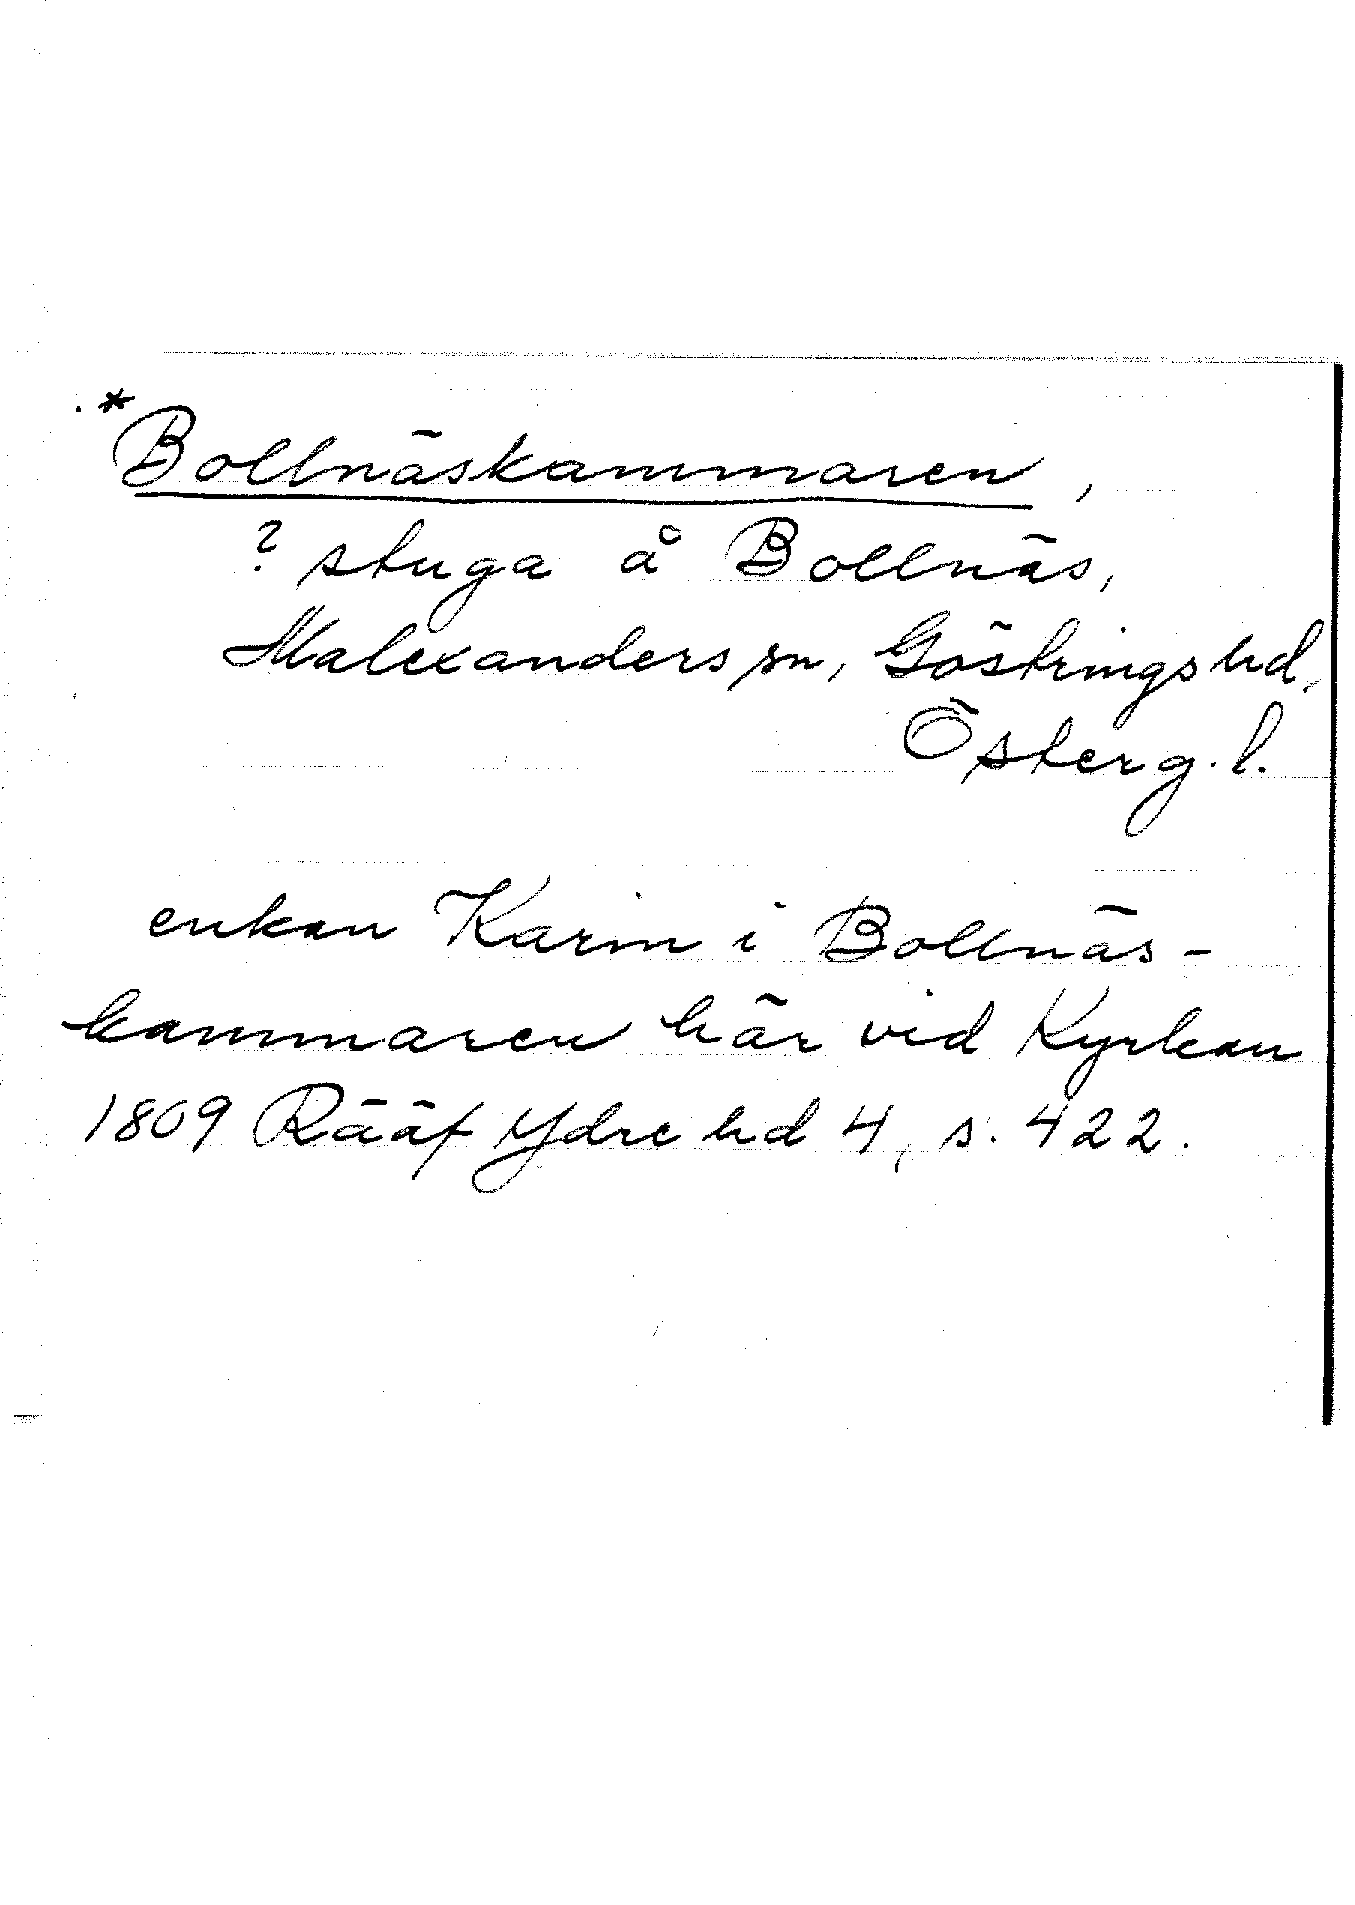 *Bollnäskammaren,
? stuga å Bollnäs,
Malexanders sn, Göstrings hd,
Österg. l.
enkan Karin i Bollnäs-
kammaren här vid Kyrkan
1809 Rääf Ydre hd 4, s. 422.